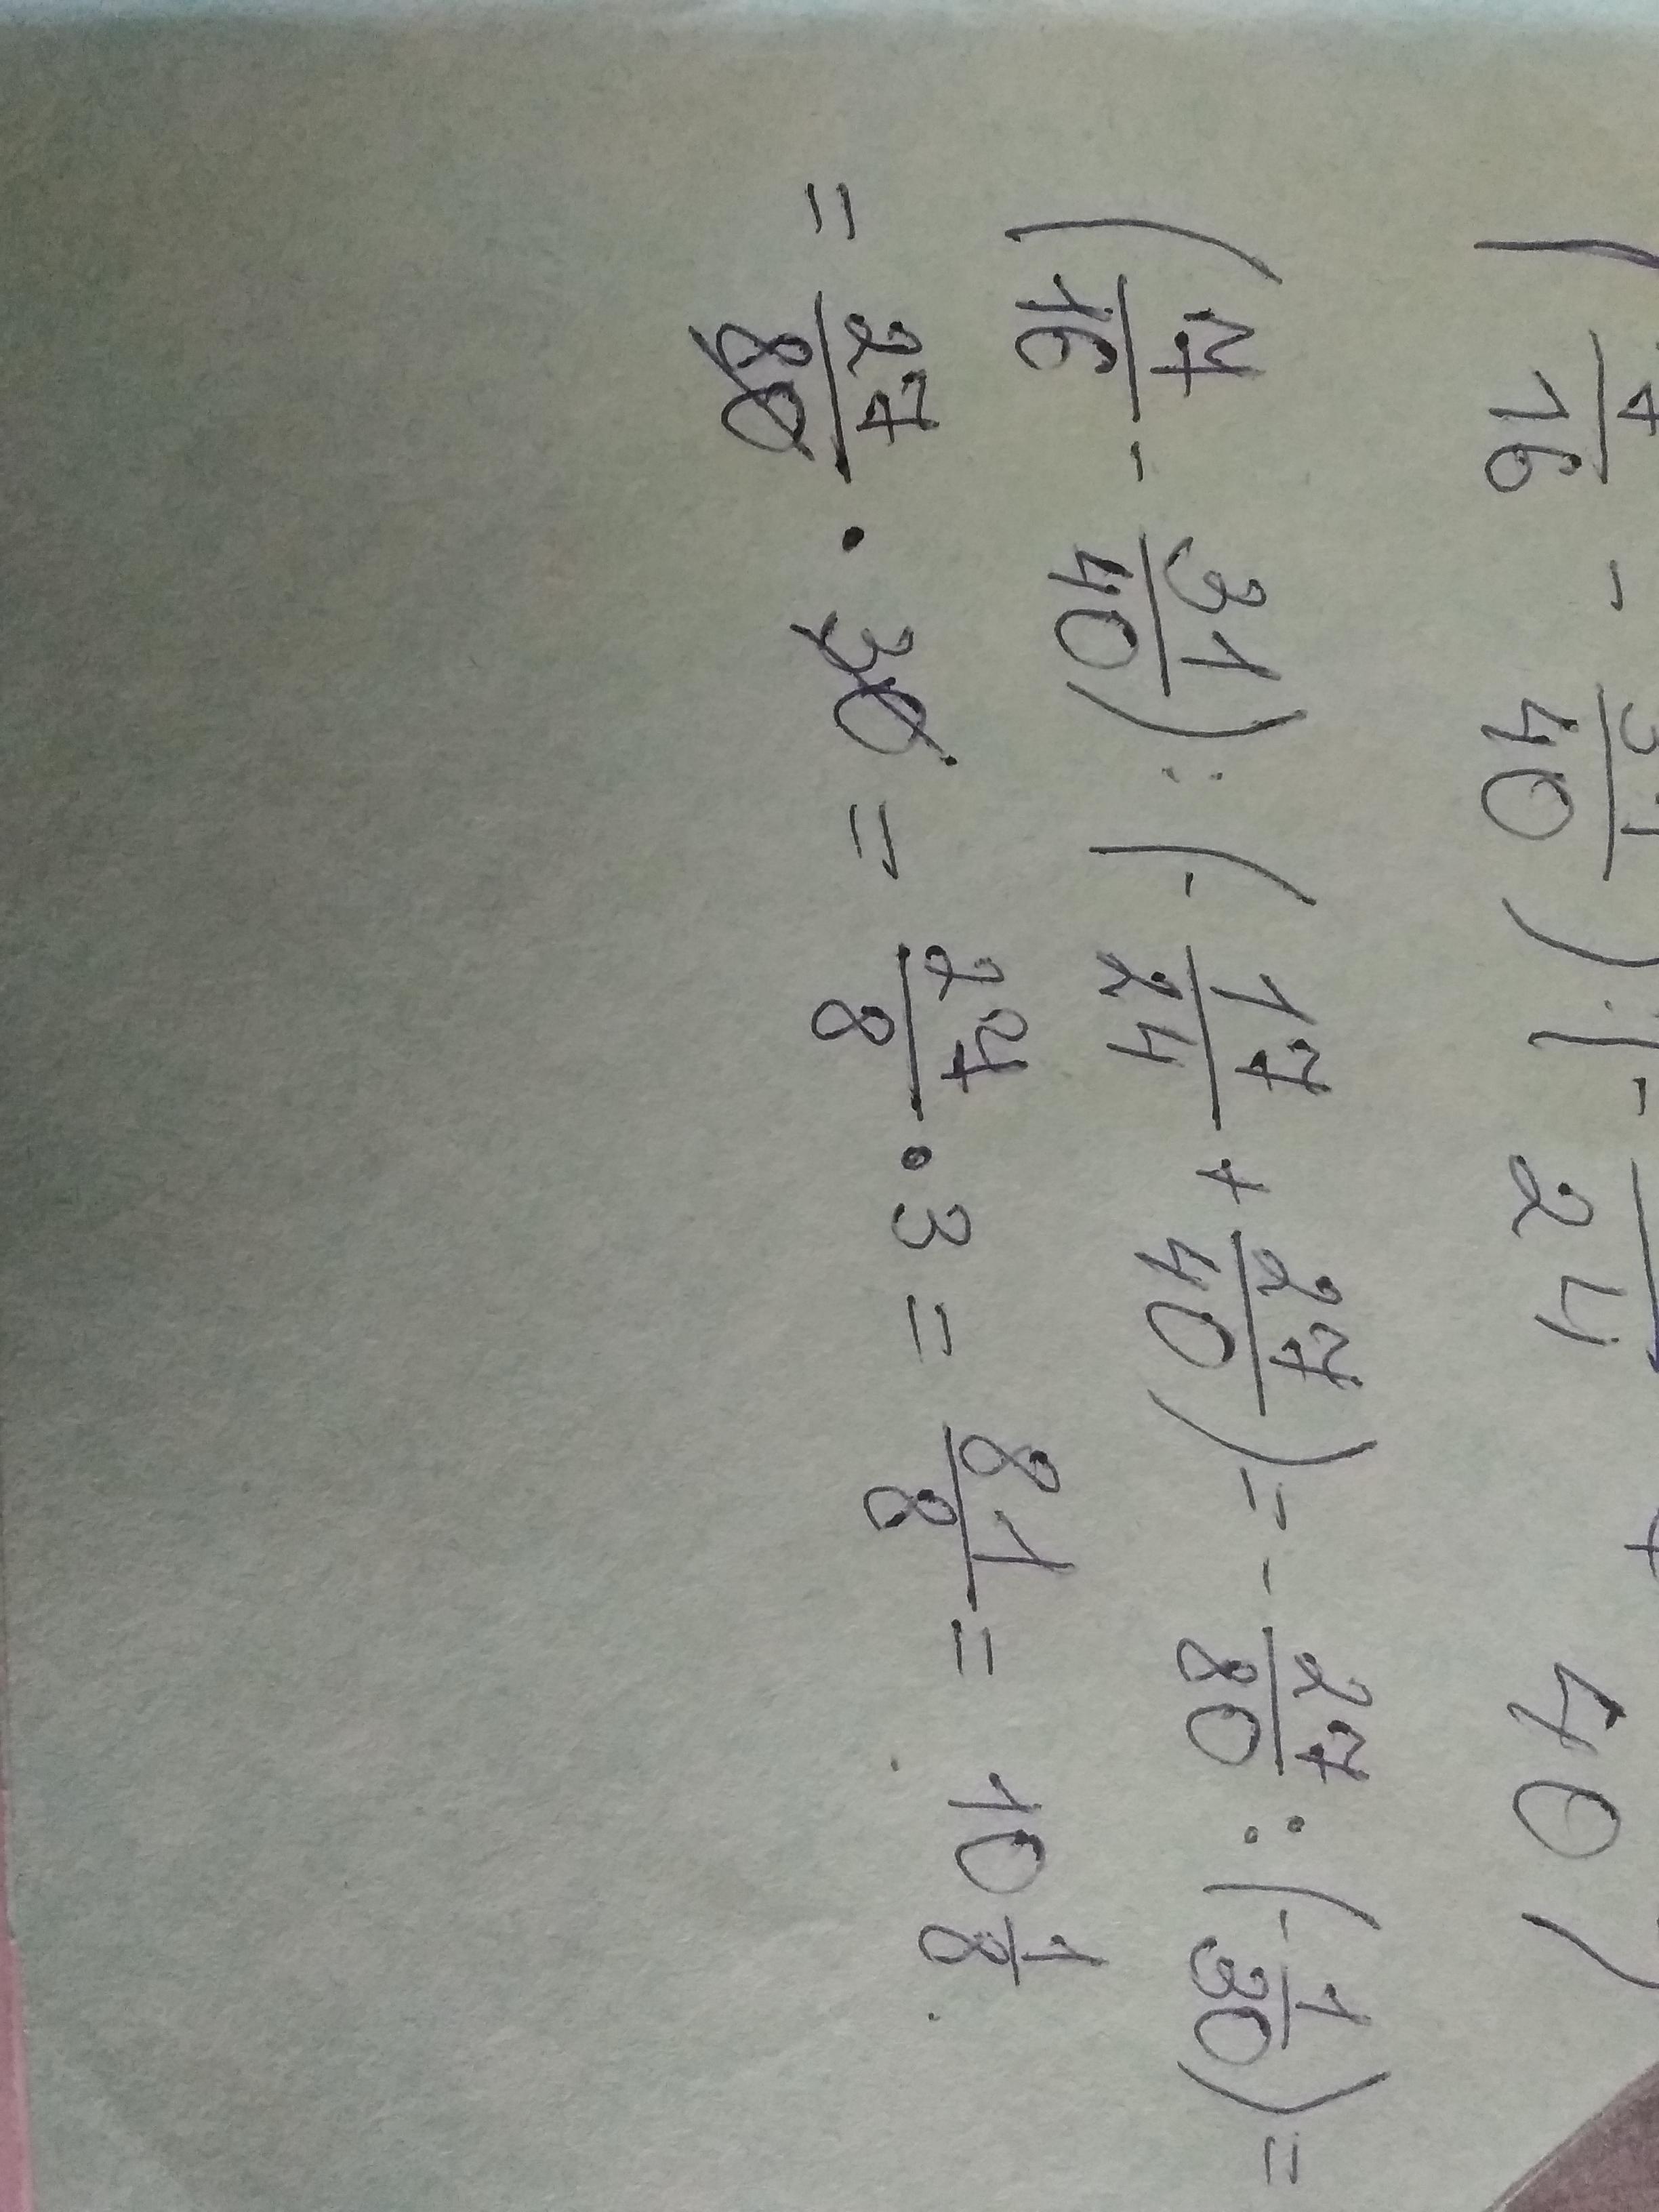 ( 7/16 - 31/40 ) : ( - /24 + /40 )
( 7/16 - 31/40 ) : ( - 17/24 + 27/40 ) = - 27/80 : ( - 1/30 ) =
= 27/80 · 30 = 27/8 · 3 = 81/8 = 10 1/8 .